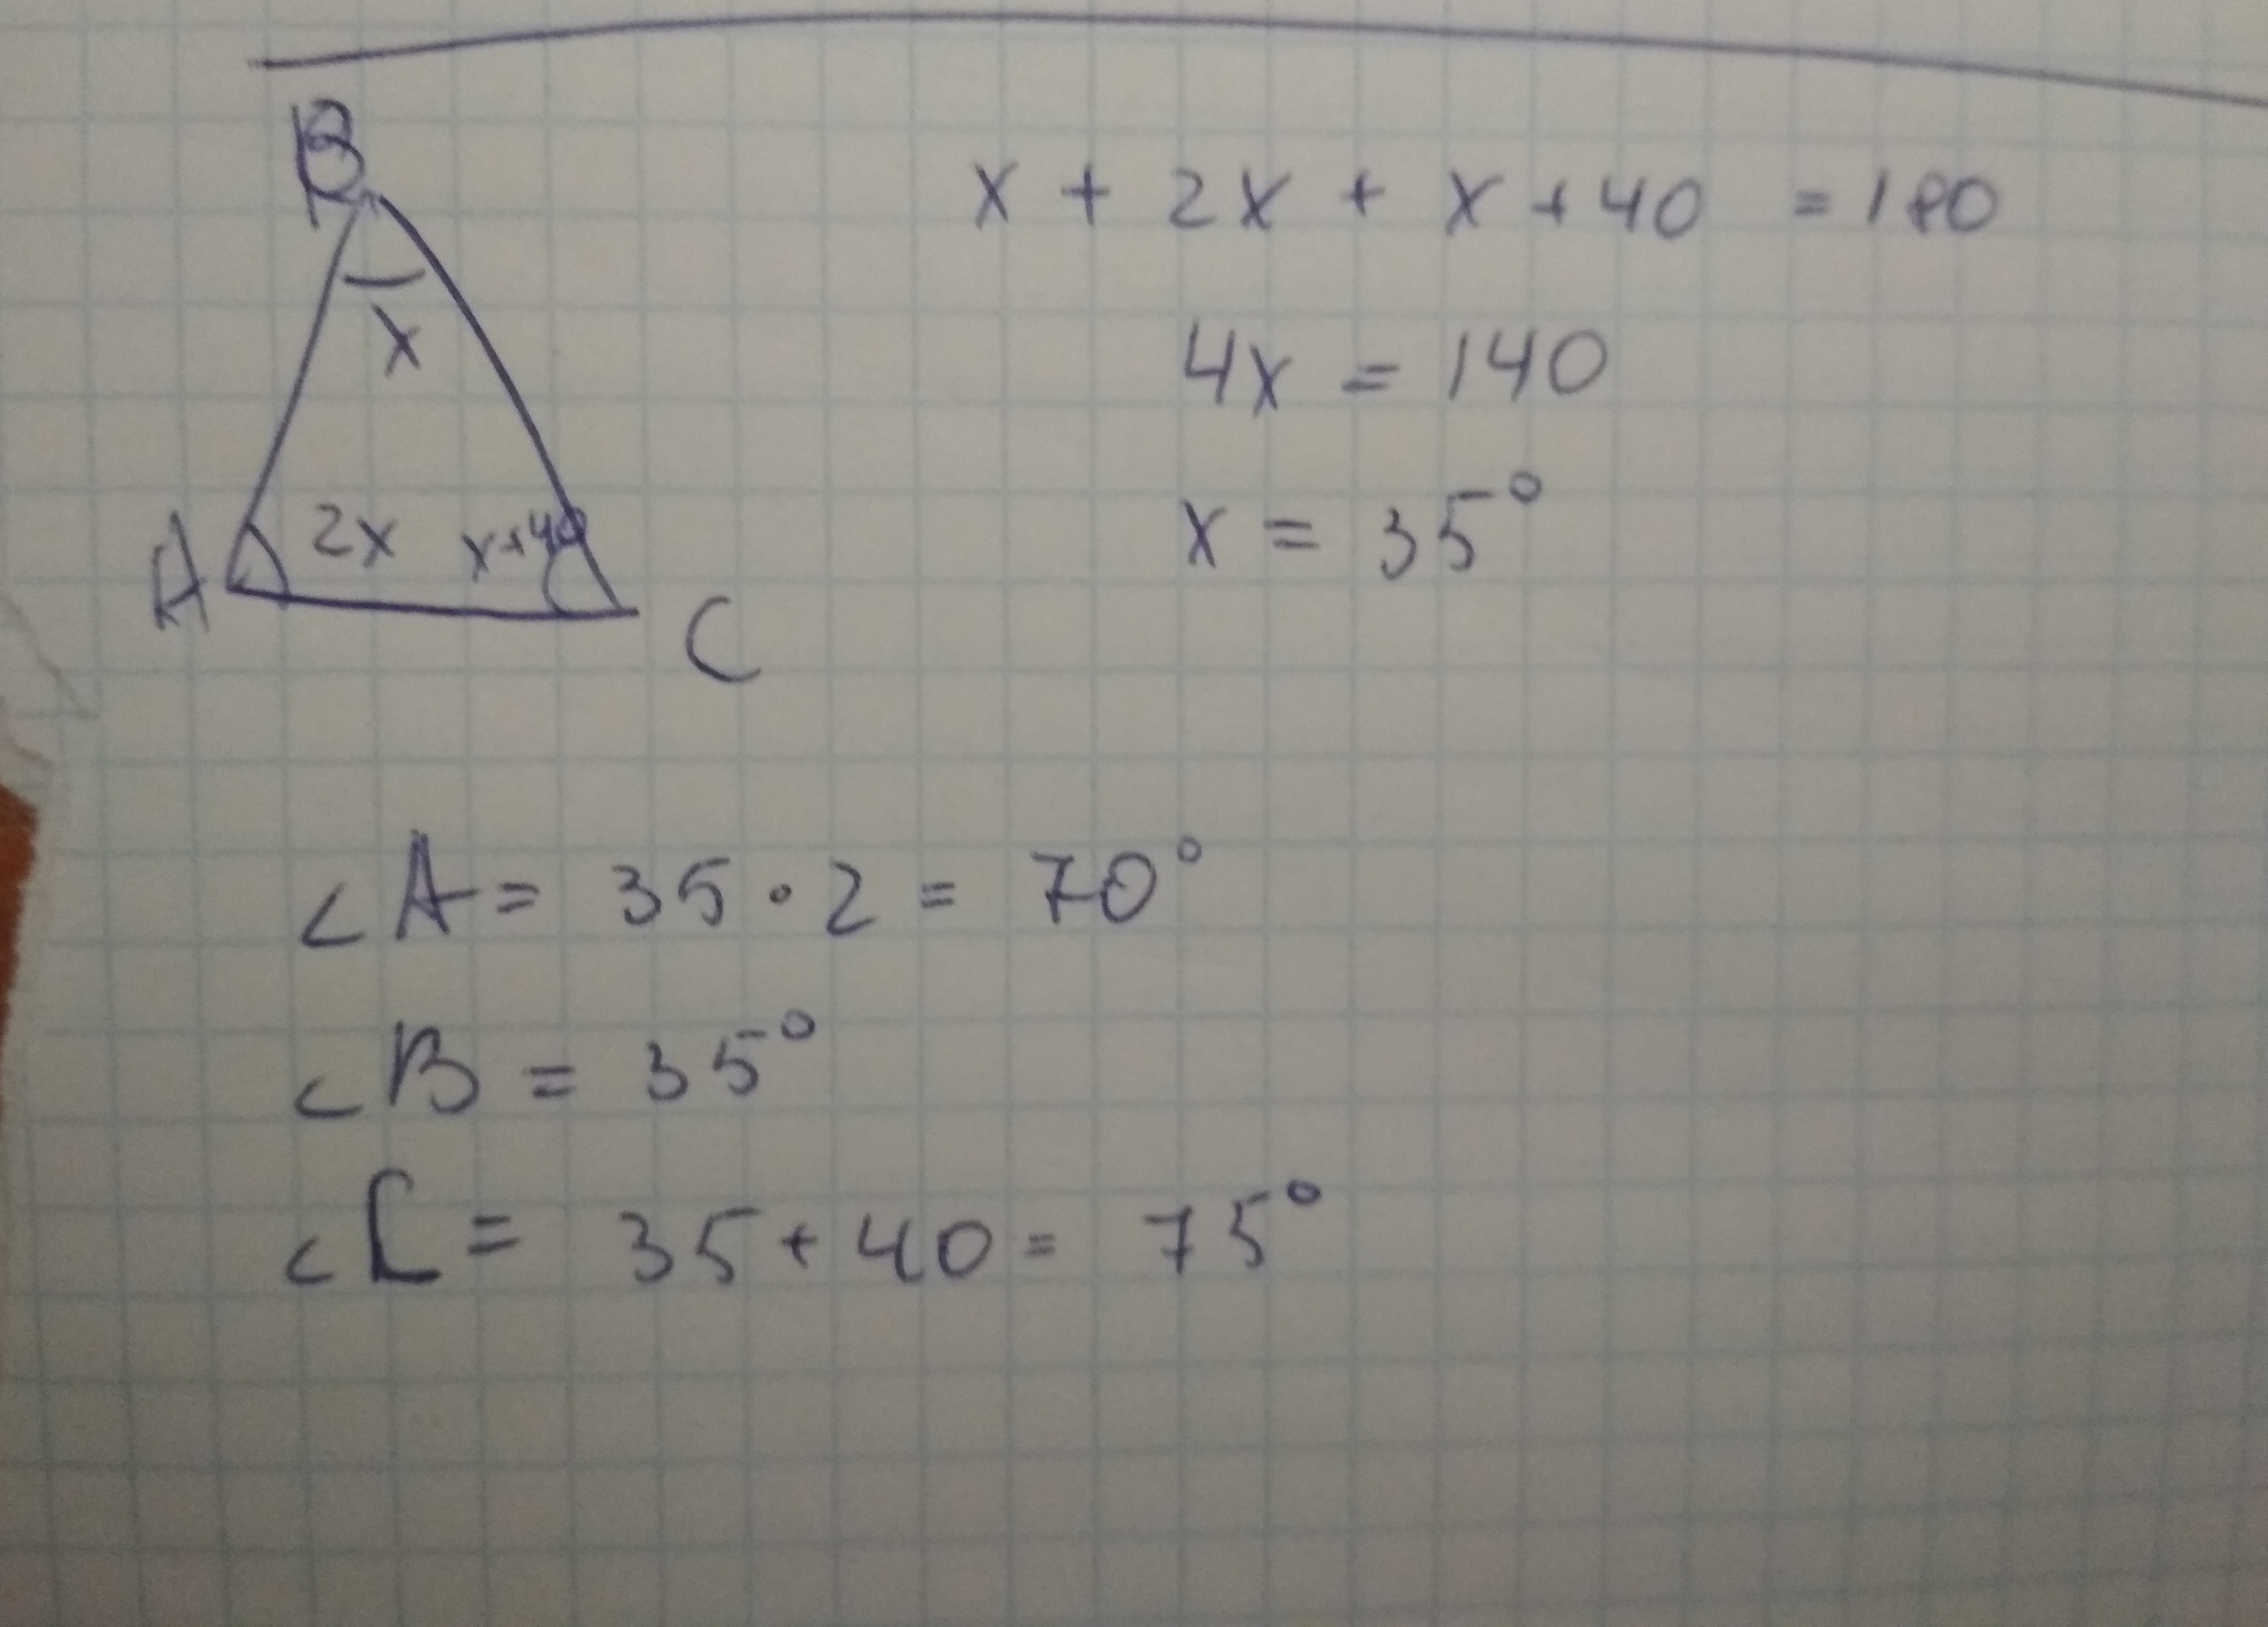 B
x
2x x+40
A
C
x + 2x + x + 40 = 180
4x = 140
x = 35°
∠A = 35 · 2 = 70°
∠B = 35°
∠C = 35 + 40 = 75°